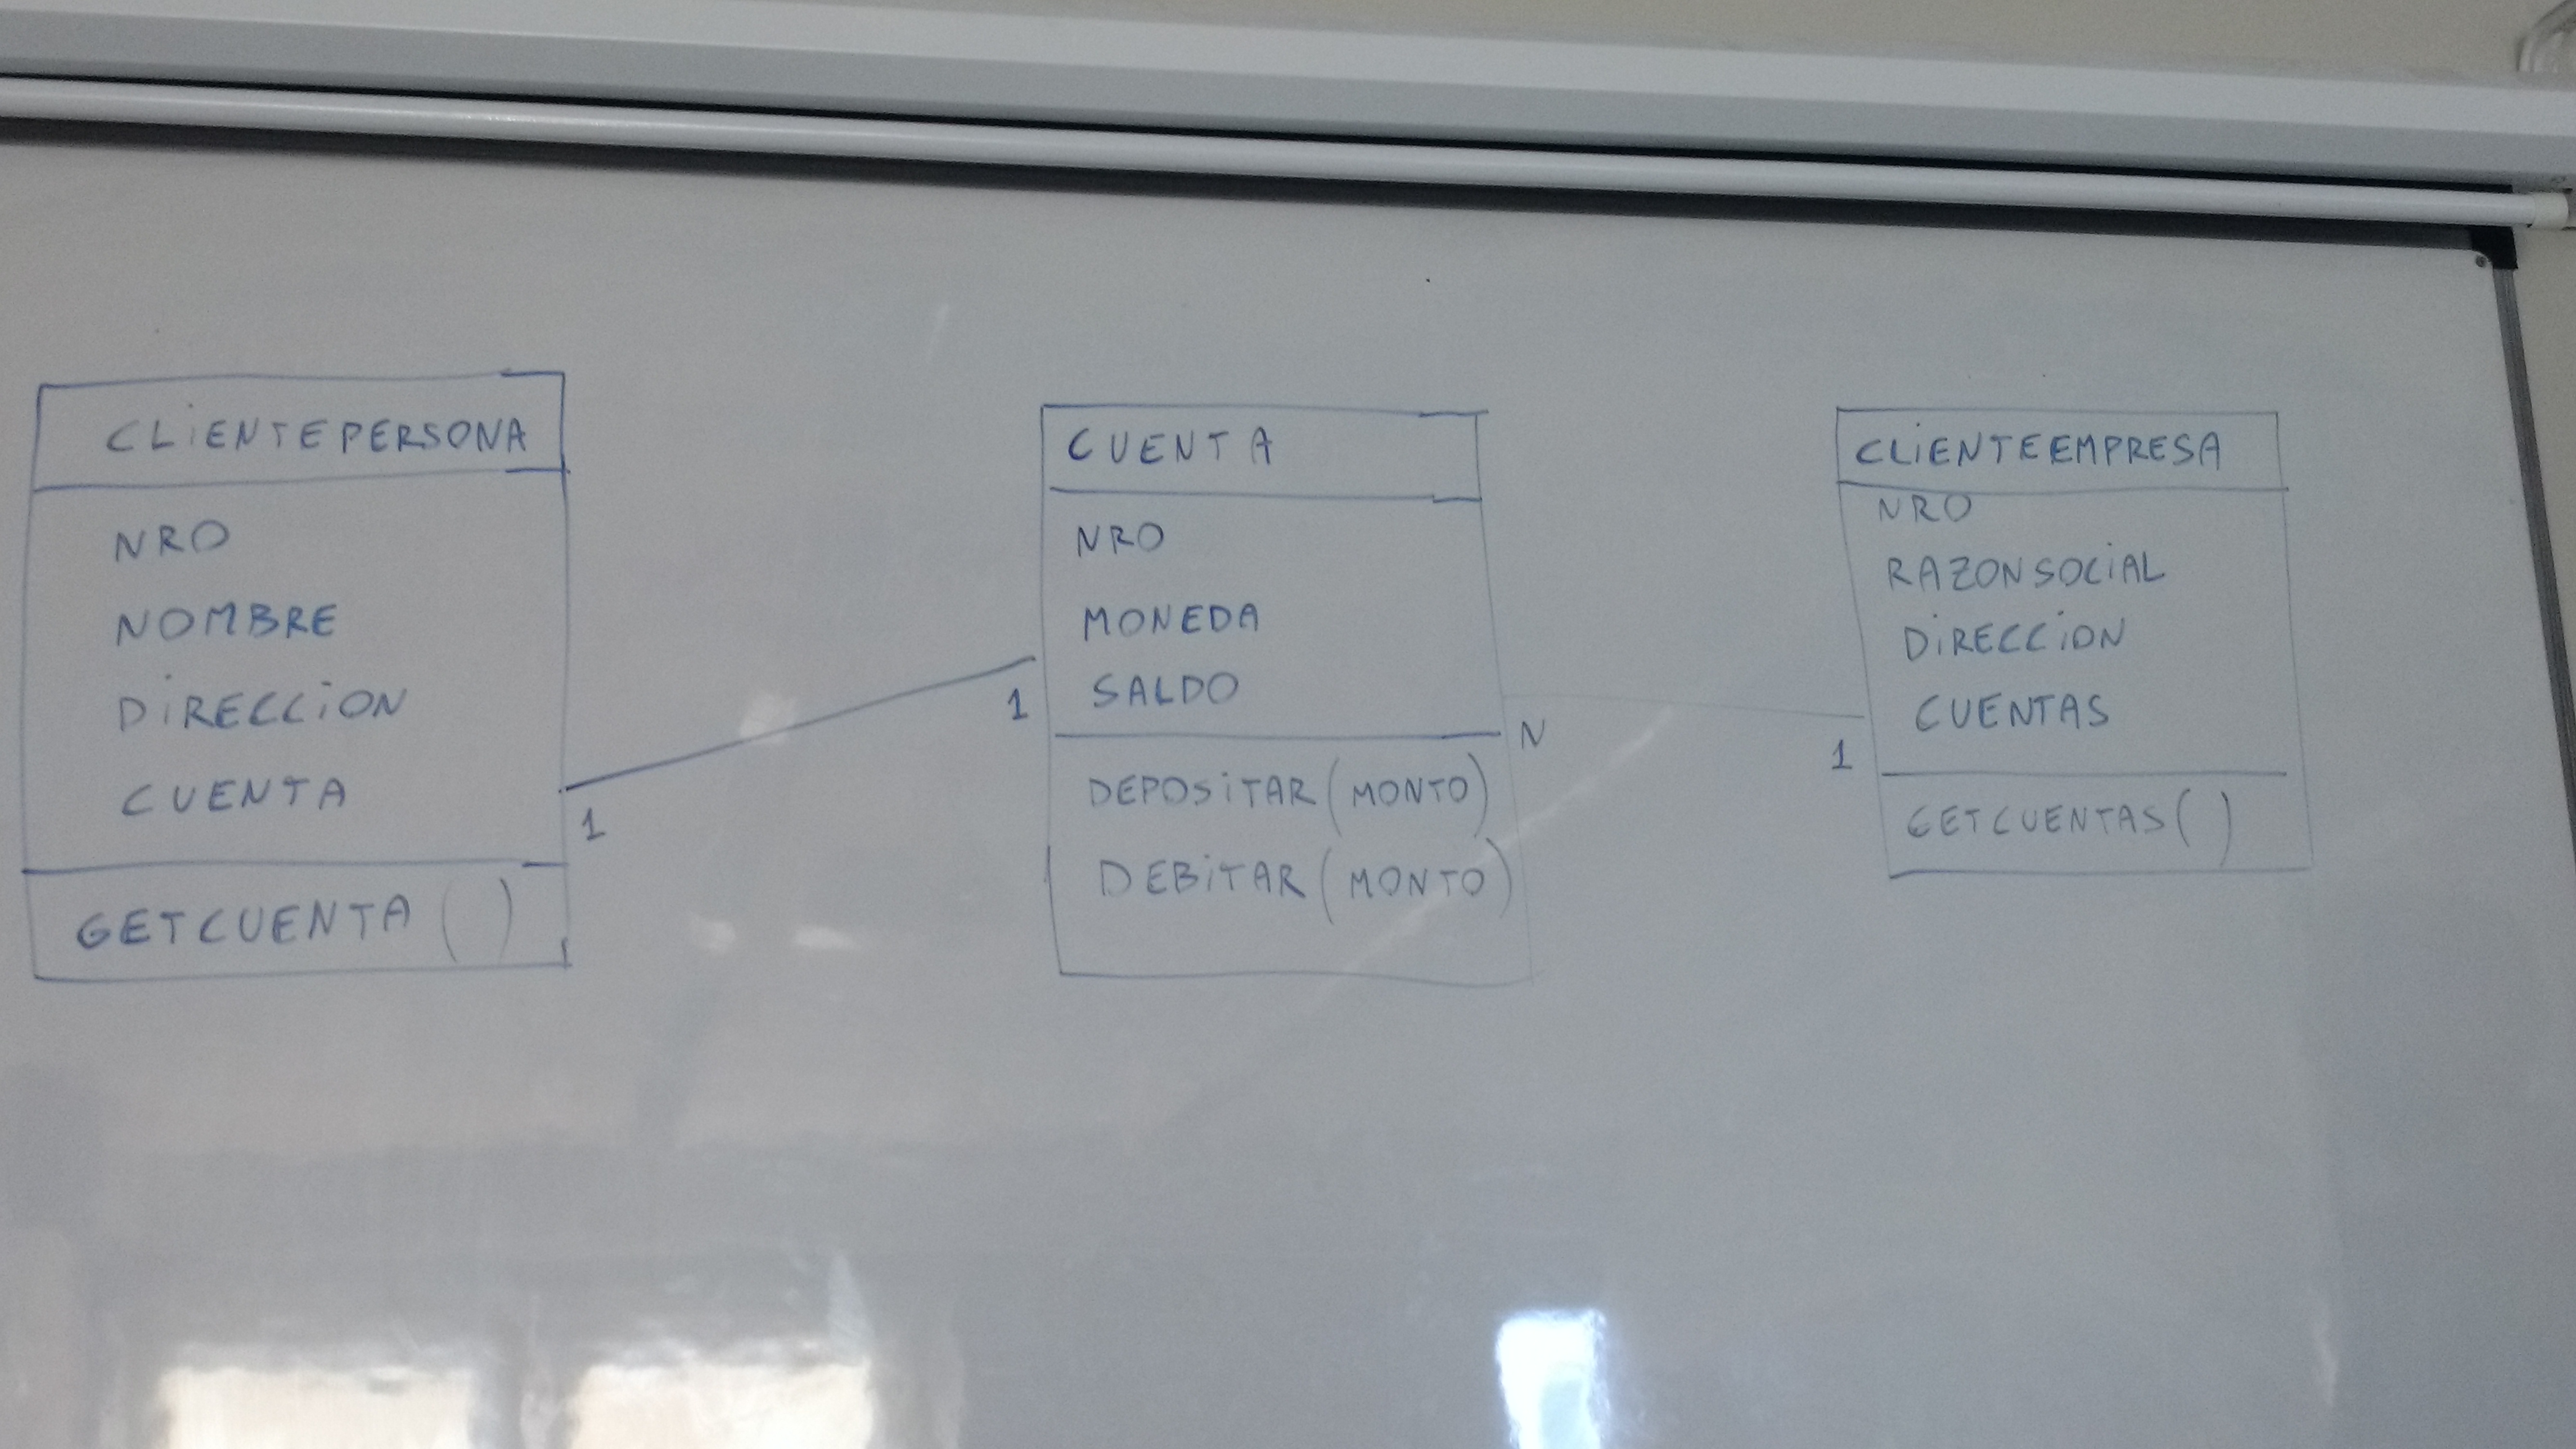 CLiENTEPERSONA
NRO
NOMBRE
DiRECCiON
CUENTA
GETCUENTA ( )
1
1
CUENTA
NRO
MONEDA
SALDO
DEPOSiTAR (MONTO)
DEBiTAR (MONTO)
N
1
CLiENTEEMPRESA
NRO
RAZONSOCiAL
DiRECCiON
CUENTAS
GETCUENTAS ( )